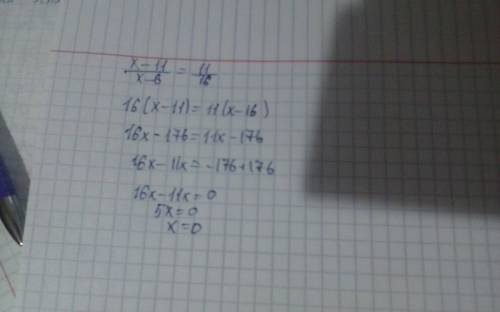 x-11/x-6 = 11/16
16(x-11)=11(x-16)
16x-176=11x-176
16x-11x=-176+176
16x-11x=0
5x=0
x=0